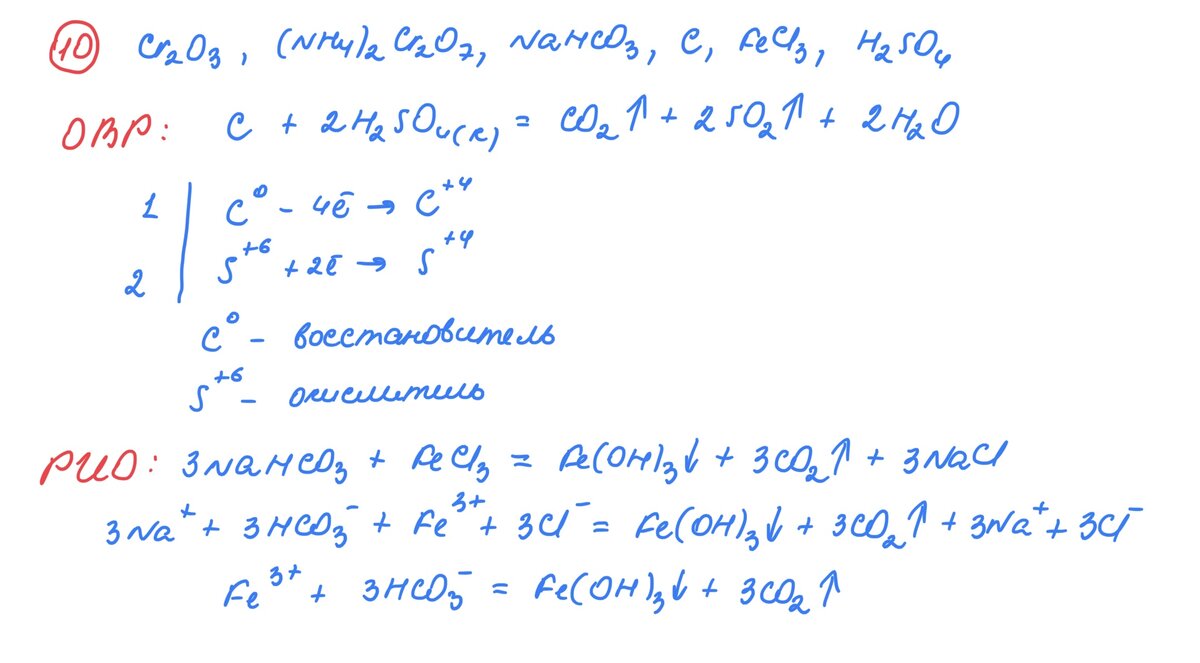 10 Cr₂O₃, (NH₄)₂Cr₂O₇, NaHCO₃, C, FeCl₃, H₂SO₄
ОВР: C + 2H₂SO₄(к) = CO₂↑ + 2SO₂↑ + 2H₂O
1 | C⁰ - 4ē → C⁺⁴
2 | S⁺⁶ + 2ē → S⁺⁴
C⁰ - восстановитель
S⁺⁶ - окислитель
РИО: 3NaHCO₃ + FeCl₃ = Fe(OH)₃↓ + 3CO₂↑ + 3NaCl
3Na⁺ + 3HCO₃⁻ + Fe³⁺ + 3Cl⁻ = Fe(OH)₃↓ + 3CO₂↑ + 3Na⁺ + 3Cl⁻
Fe³⁺ + 3HCO₃⁻ = Fe(OH)₃↓ + 3CO₂↑